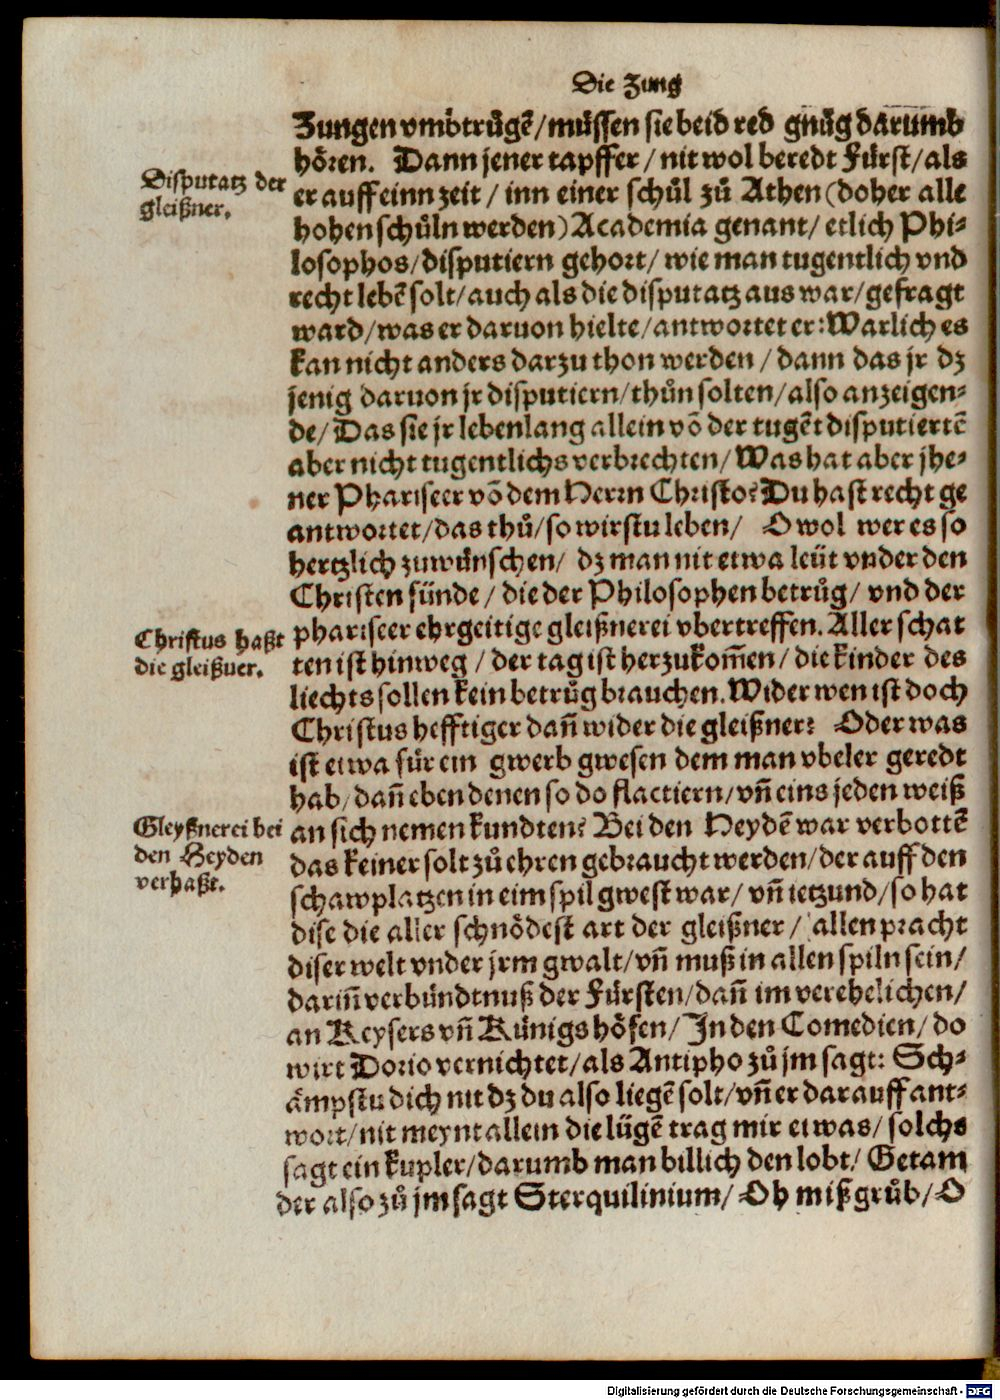 Die Zung
Zungen vmbtruͤgē/muͤssen sie beid red gnuͤg darumb
hoͤren. Dann jener tapffer/nit wol beredt Fürst/als
Disputatz der
gleißner.
er auff einn zeit/inn einer schuͤl zuͦ Athen (doher alle
hohen schuͦln werden) Academia genant/etlich Phi-
losophos/disputiern gehort/wie man tugentlich vnd
recht lebē solt/auch als die disputatz aus war/gefragt
ward/was er daruon hielte/antwortet er: Warlich es
kan nicht anders darzu thon werden/dann das jr dz
jenig daruon jr disputiern/thuͦn solten/also anzeigen-
de/Das sie jr lebenlang allein vō der tugēt disputiertē
aber nicht tugentlichs verbrechten/Was hat aber jhe-
ner Phariseer vō dem Herrn Christo? Du hast recht ge
antwortet/das thuͦ/so wirstu leben/ O wol wer es so
hertzlich zuwünschen/dz man nit etwa leüt vnder den
Christen fünde/die der Philosophen betruͦg/vnd der
Christus haßt
die gleißner.
phariseer ehrgeitige gleißnerei vbertreffen. Aller schat
ten ist hinweg/der tag ist herzukom̄en/die kinder des
liechts sollen kein betruͦg brauchen. Wider wen ist doch
Christus hefftiger dan̄ wider die gleißner? Oder was
ist etwa für ein gwerb gwesen dem man vbeler geredt
hab/dan̄ eben denen so do flactiern/vn̄ eins jeden weiß
Gleyßnerei bei
den Heyden
verhaßt.
an sich nemen kundten? Bei den Heydē war verbottē
das keiner solt zuͦ ehren gebraucht werden/der auff den
schawplatzen in eim spil gwest war/vn̄ ietzund/so hat
dise die aller schnoͤdest art der gleißner/allen pracht
diser welt vnder jrm gwalt/vn̄ muß in allen spiln sein/
darin̄ verbündtnuß der Fürsten/dan̄ im verehelichen/
an Keysers vn̄ Künigs hoͤfen/In den Comedien/do
wirt Dorio vernichtet/als Antipho zuͦ jm sagt: Sch-
aͤmpstu dich nit dz du also liegē solt/vn̄ er darauff ant-
wort/nit meynt allein die lügē trag mir etwas/solchs
sagt ein kupler/darumb man billich den lobt/Getam
der also zuͦ jm sagt Sterquilinium/Oh mißgruͦb/O
Digitalisierung gefördert durch die Deutsche Forschungsgemeinschaft - DFG